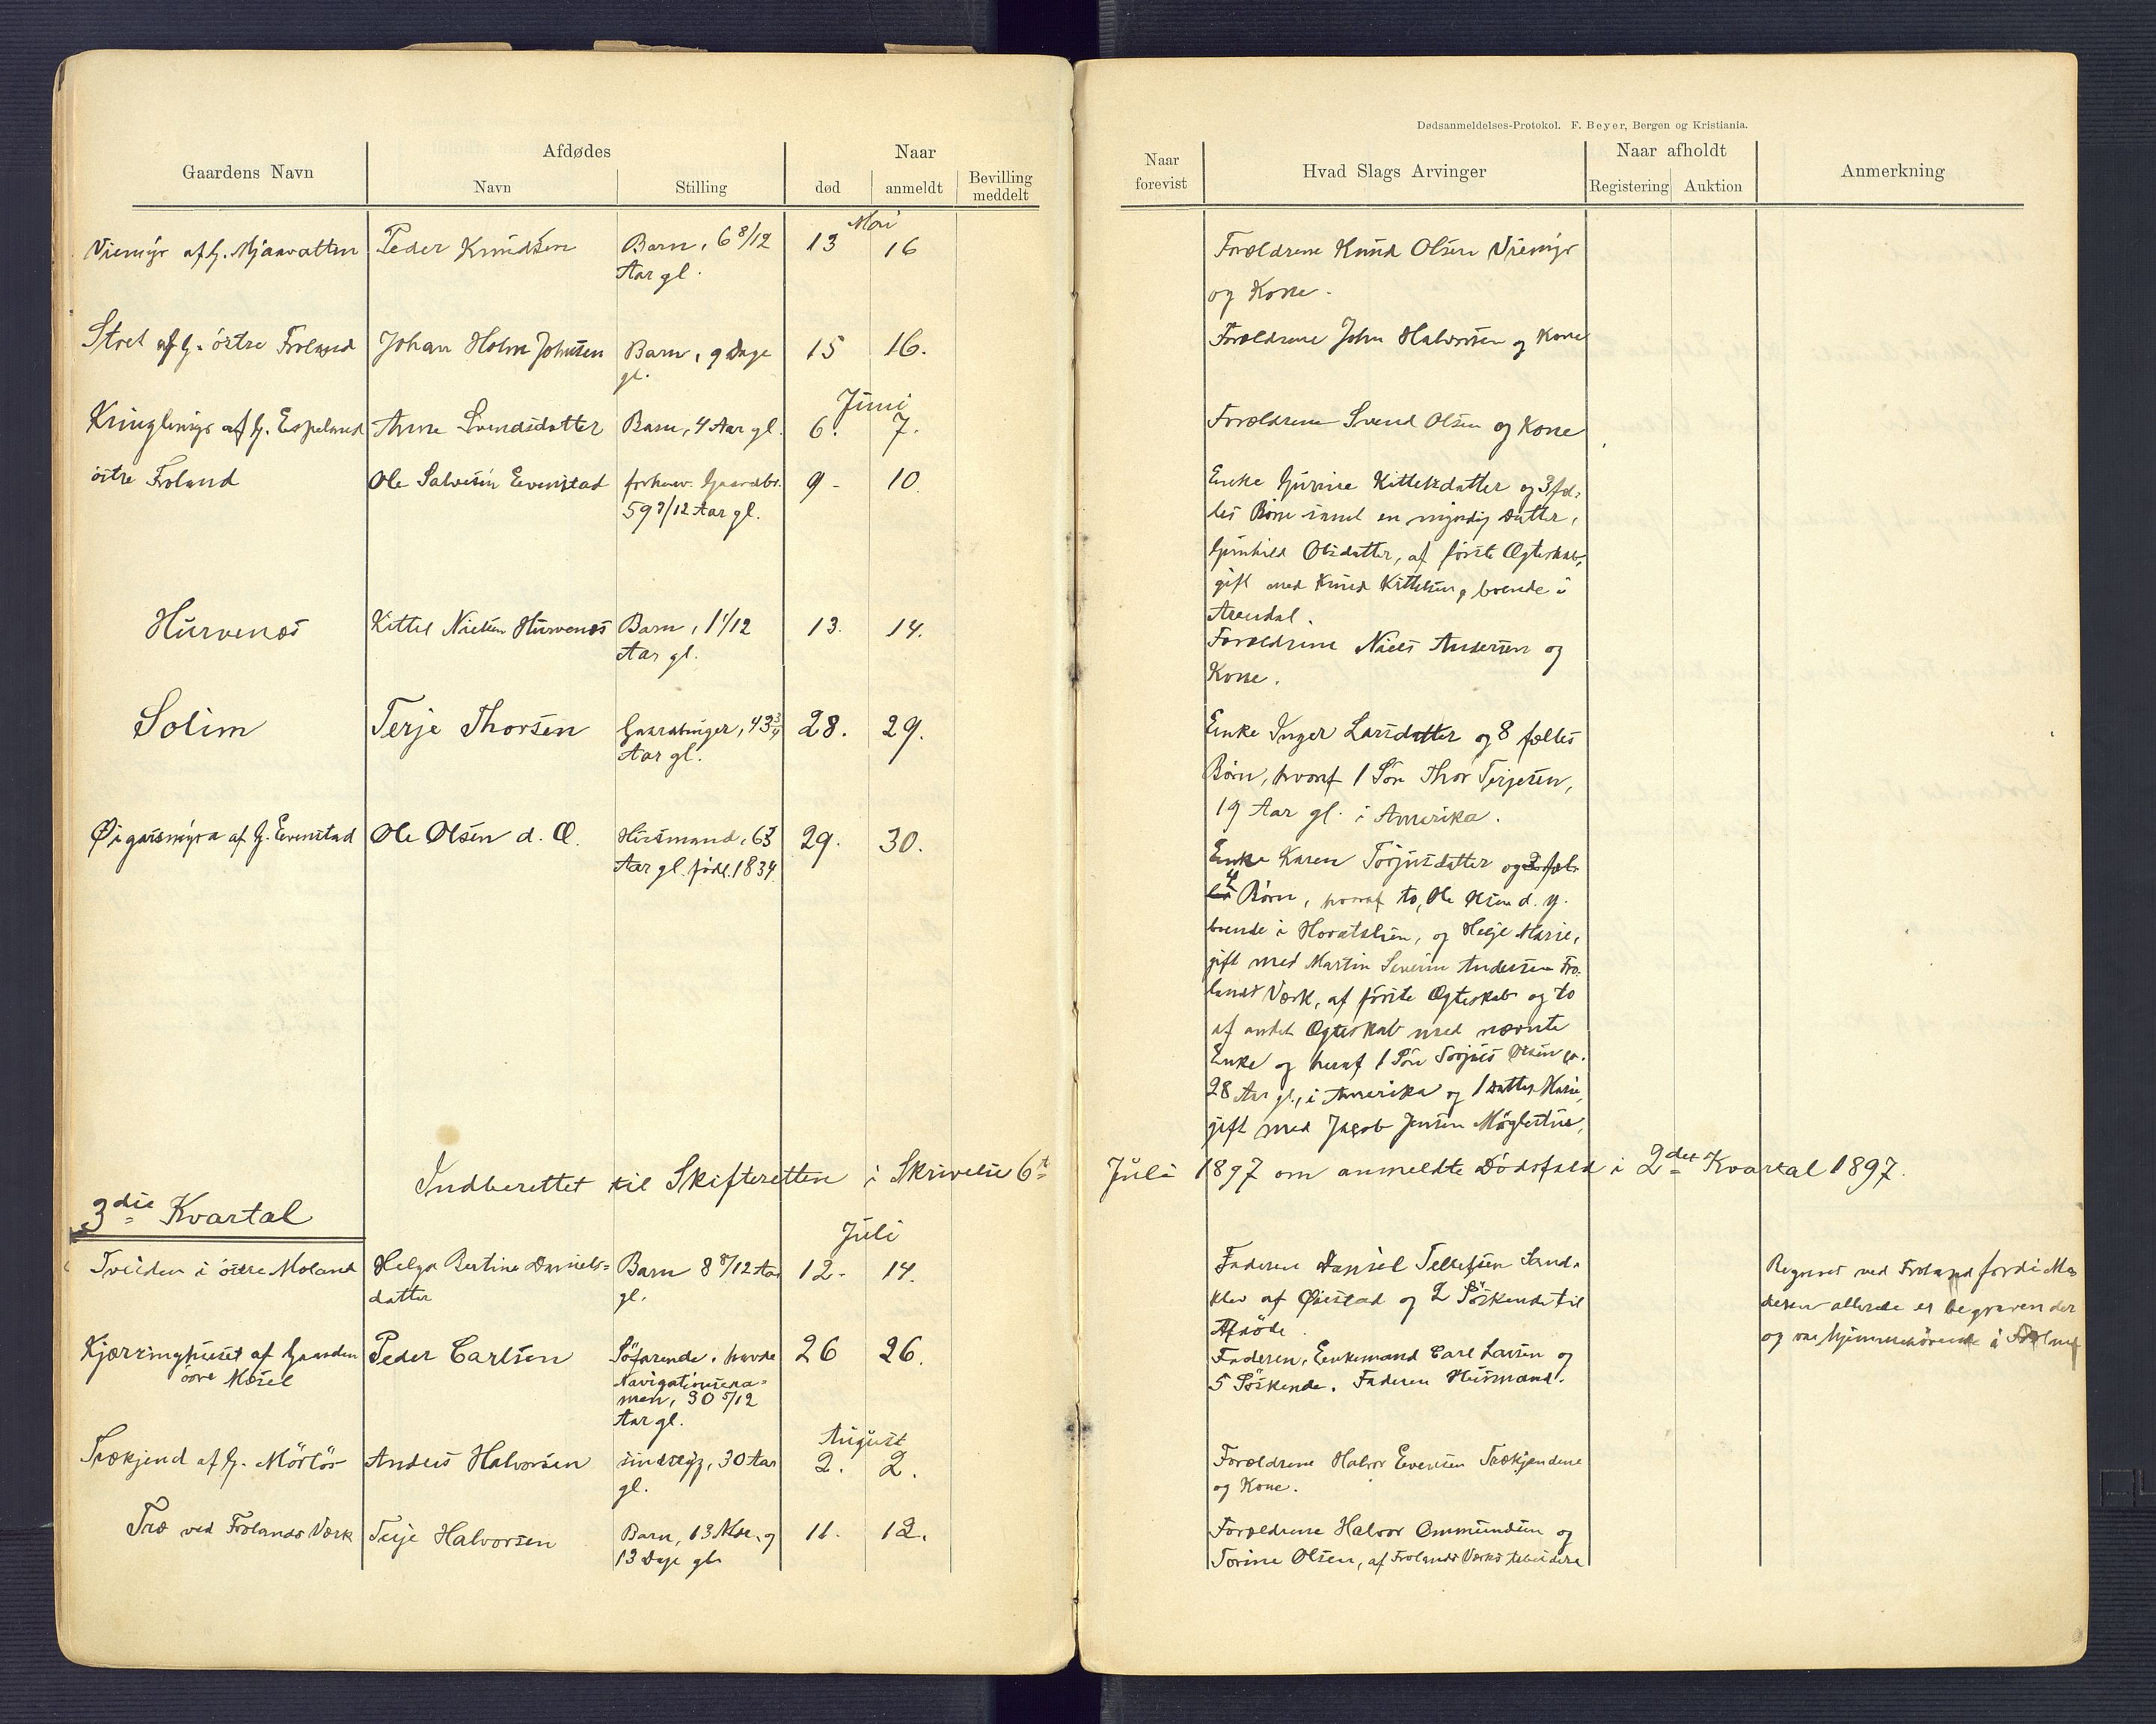 Dødsanmeldelses-Protokol. F. Beyer, Bergen og Kristiania.
Gaardens Navn
Afdødes
Navn
Stilling
Naar
død
anmeldt
Bevilling
meddelt
Naar
forevist
Hvad Slags Arvinger
Naar afholdt
Registering
Auktion
Anmerkning
Mai
Viemyr af G. Mjaavatten
Peder Knudsen
Barn, 6 8/12
Aar gl.
13
16
Forældrene Knud Olsen Viemyr
og Kone.
Stret af G. östre Froland
Johan Holm Johnsen
Barn, 9 Dage
gl.
15
16.
Forældrene John Halvorsen og Kone
Juni
Kringlemyr af G. Espeland
Anne Svendsdatter
Barn, 4 Aar gl.
6.
7.
Forældrene Svend Olsen og Kone
östre Froland
Ole Salvesen Evenstad
forhenv. Gaardbr.
59 7/12 Aar gl.
9.
10.
Enke Gurine Kittelsdatter og 3 fæl-
les Börn samt en myndig Datter,
Gunhild Olsdatter, af förste Ægteskab,
gift med Knud Kittelsen, boende i
Arendal.
Hurvenes
Kittel Nielsen Hurvenes
Barn, 1 1/12
Aar gl.
13.
14.
Forældrene Niels Andersen og
Kone.
Solim
Terje Thorsen
Gaardbruger, 43 3/4
Aar gl.
28.
29.
Enke Inger Larsdatter og 8 fælles
Börn, hvoraf 1 Sön Thor Terjesen,
19 Aar gl. i Amerika.
Øigarsmyra af G. Evenstad
Ole Olsen d. Æ.
Husmand, 63
Aar gl. född. 1834.
29.
30.
Enke Karen Torjusdatter og 2 fæl-
les 4 Börn, hvoraf to, Ole Olsen d. y.
boende i , og Helje Marie,
gift med Martin Severin Andersen Fro-
lands Værk, af förste Ægteskab og to
af andet Ægteskab med nævnte
Enke og heraf 1 Sön Torjus Olsen
28 Aar gl., i Amerika og 1 Datter Marie,
gift med Jacob Jensen Möglestue.
Indberettet til Skifteretten i Skrivelse 6te Juli 1897 om anmeldte Dödsfald i 2det Kvartal 1897.
3die Kvartal
Juli
Tveiden i östre Moland
Helga Bertine Daniels-
datter
Barn 8 8/12 Aar
gl.
12.
14.
Faderen Daniel Tellefsen Sand-
klev af Øiestad og 2 Söskende til
Afdöde.
Begravet ved Froland fordi Mo-
deren allerede er begraven der
og var hjemmehörende i Froland
Kjærringhuset af Gaarden
övre Mesel
Peder Carlsen
Söfarende, havde
Navigationsexa-
men, 30 5/12
Aar gl.
26
26.
Faderen, Enkemand Carl Larsen og
5 Söskende. Faderen Husmand.
August
Trækjend af G. Mörlös
Anders Halvorsen
sindssyg, 30 Aar
gl.
2.
2.
Forældrene Halvor Evensen Trækjendene
og Kone.
Træ ved Frolands Værk
Terje Halvorsen
Barn, 13 Mdr. og
13 Dage gl.
11.
12.
Forældrene Halvor Ommundsen og
Torine Olsen, af Frolands Værks